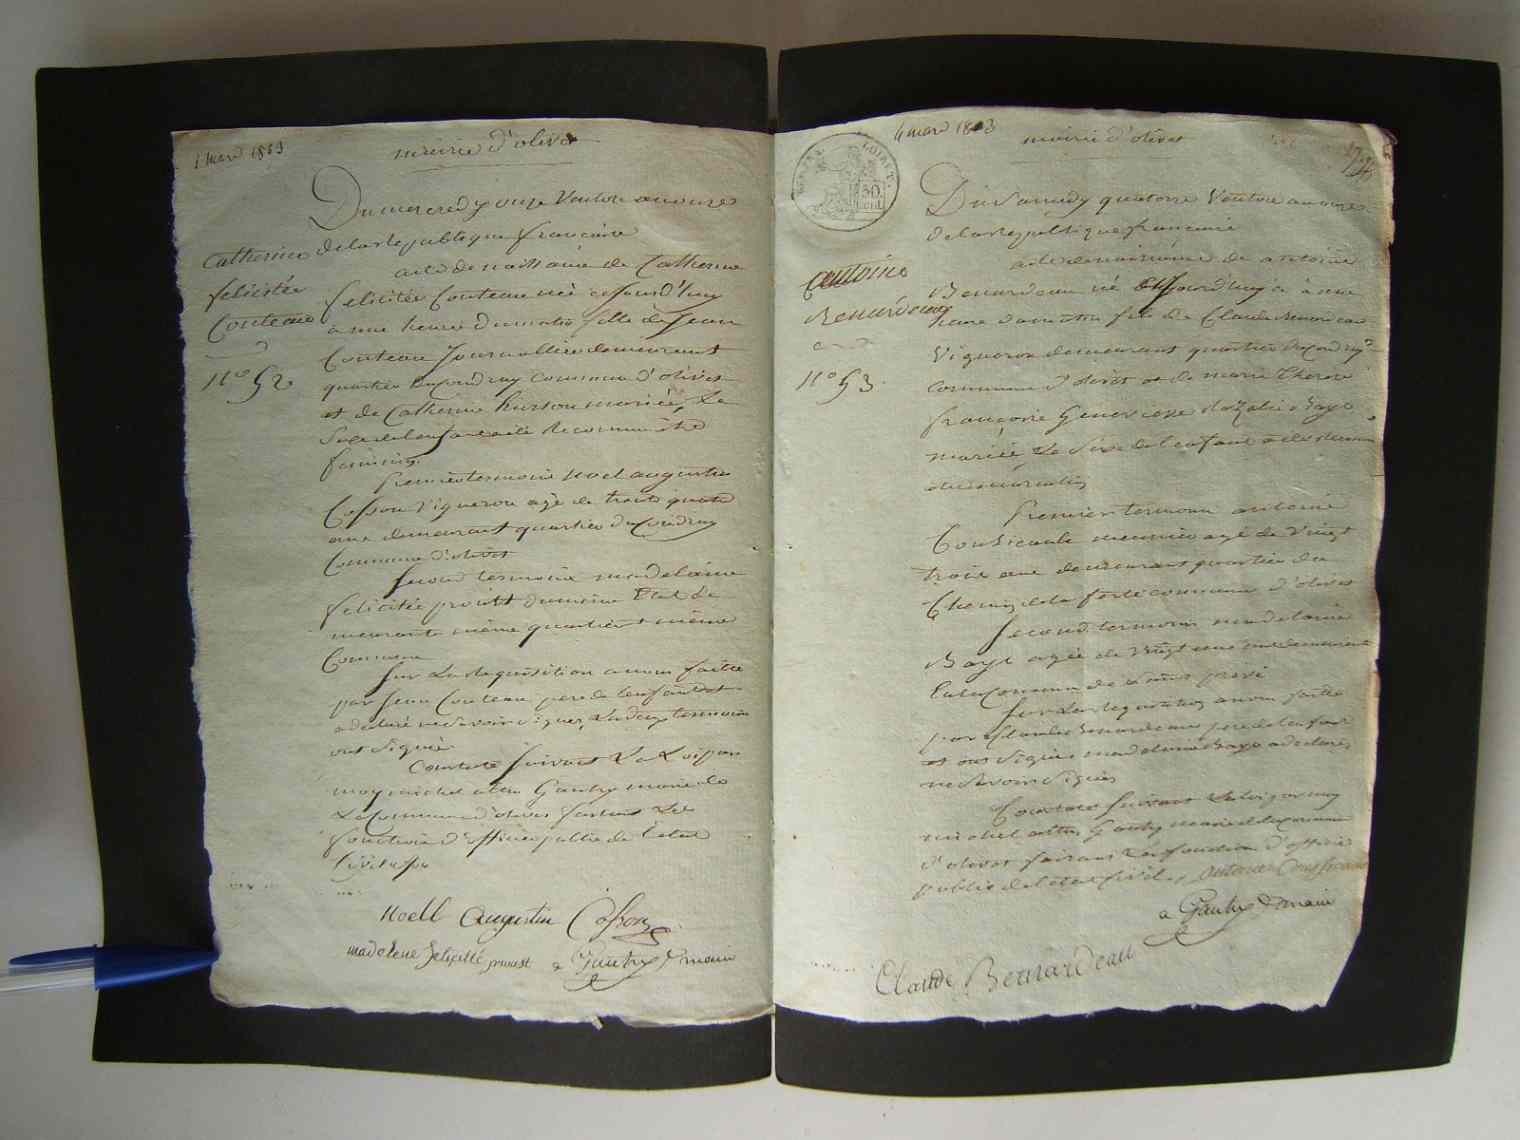 1 mars 1803
mairie d'olivet
Du mercredy onze Ventose an onze
de la republique francaise
Catherine
felicitée
Couteau
n° 52
acte de naissance de Catherine
felicitée Couteau née cejourd'huy
à une heure du matin fille de Jean
Couteau Journallier demeurant
quartier du Coudray commune d'olivet
et de Catherine husson mariée, Le
Sexe de lenfant a été Reconnu être
feminin
Premier temoin noel augustin
Cosson vigneron agé de trente quatre
ans demeurant quartier du Coudray
Commune d'olivet
Second temoin madelaine
felicitée proust du même Etat de
meurant même quartier et même
Commune
Sur La Requisition a nous faitte
par Jean Couteau pere de lenfant et
a declaré ne Savoir Signer, Les deux temoins
ont Signé
Constaté Suivant La Loi par
moy michel Gauthy maire de
La Commune d'olivet faisant Les
fonctions d'officier public de l'état
Civil
Noell augustin Cosson
madelene felicitté proust
Gauthy maire
4 mars 1803
mairie d'olivet
DEP. DU LOIRET.
50
cent.
Du Samedy quatorze Ventose an onze
de la republique francaise
antoine
Benardeau
n° 53
acte de naissance de antoine
Benardeau né cejourd'huy à une
heure du matin fils de Claude Benardeau
Vigneron demeurant quartier du Coudray
commune d'olivet et de marie therese
francoise Genevieve Baye
mariée Le Sexe de l'enfant a été reconnu
Premier temoin antoine
meunier agé de Vingt
trois ans demeurant quartier du
Chemin de la ferté commune d'olivet
Second temoin madelaine
Baye agée de Vingt ans demeurant
Sur La requisition a nous faitte
par Claude Benardeau pere de lenfant
et ont Signé madelaine Baye a declaré
ne Savoir Signer
Constaté Suivant La Loi par moy
michel Gauthy maire de la Commune
d'olivet faisant Les fonctions d'officier
public de l'etat Civil antoine
Gauthy maire
Claude Benardeau